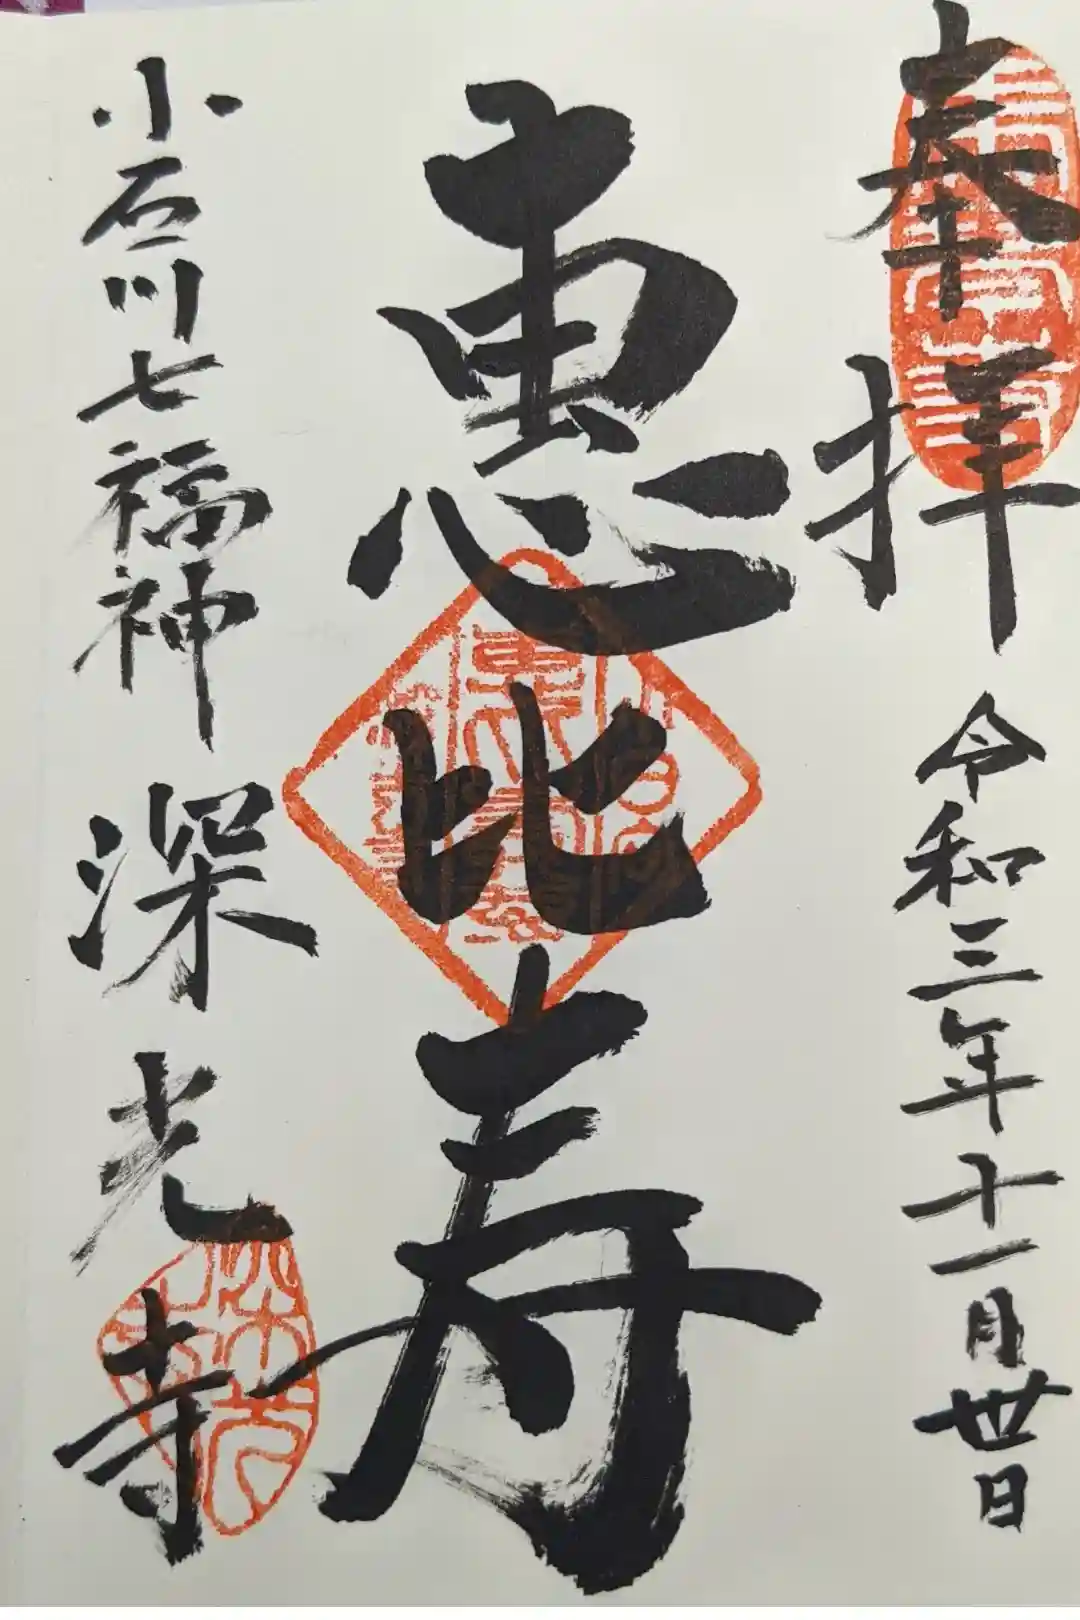 奉拝
令和三年十一月卅日
恵比寿
小石川七福神
深光寺